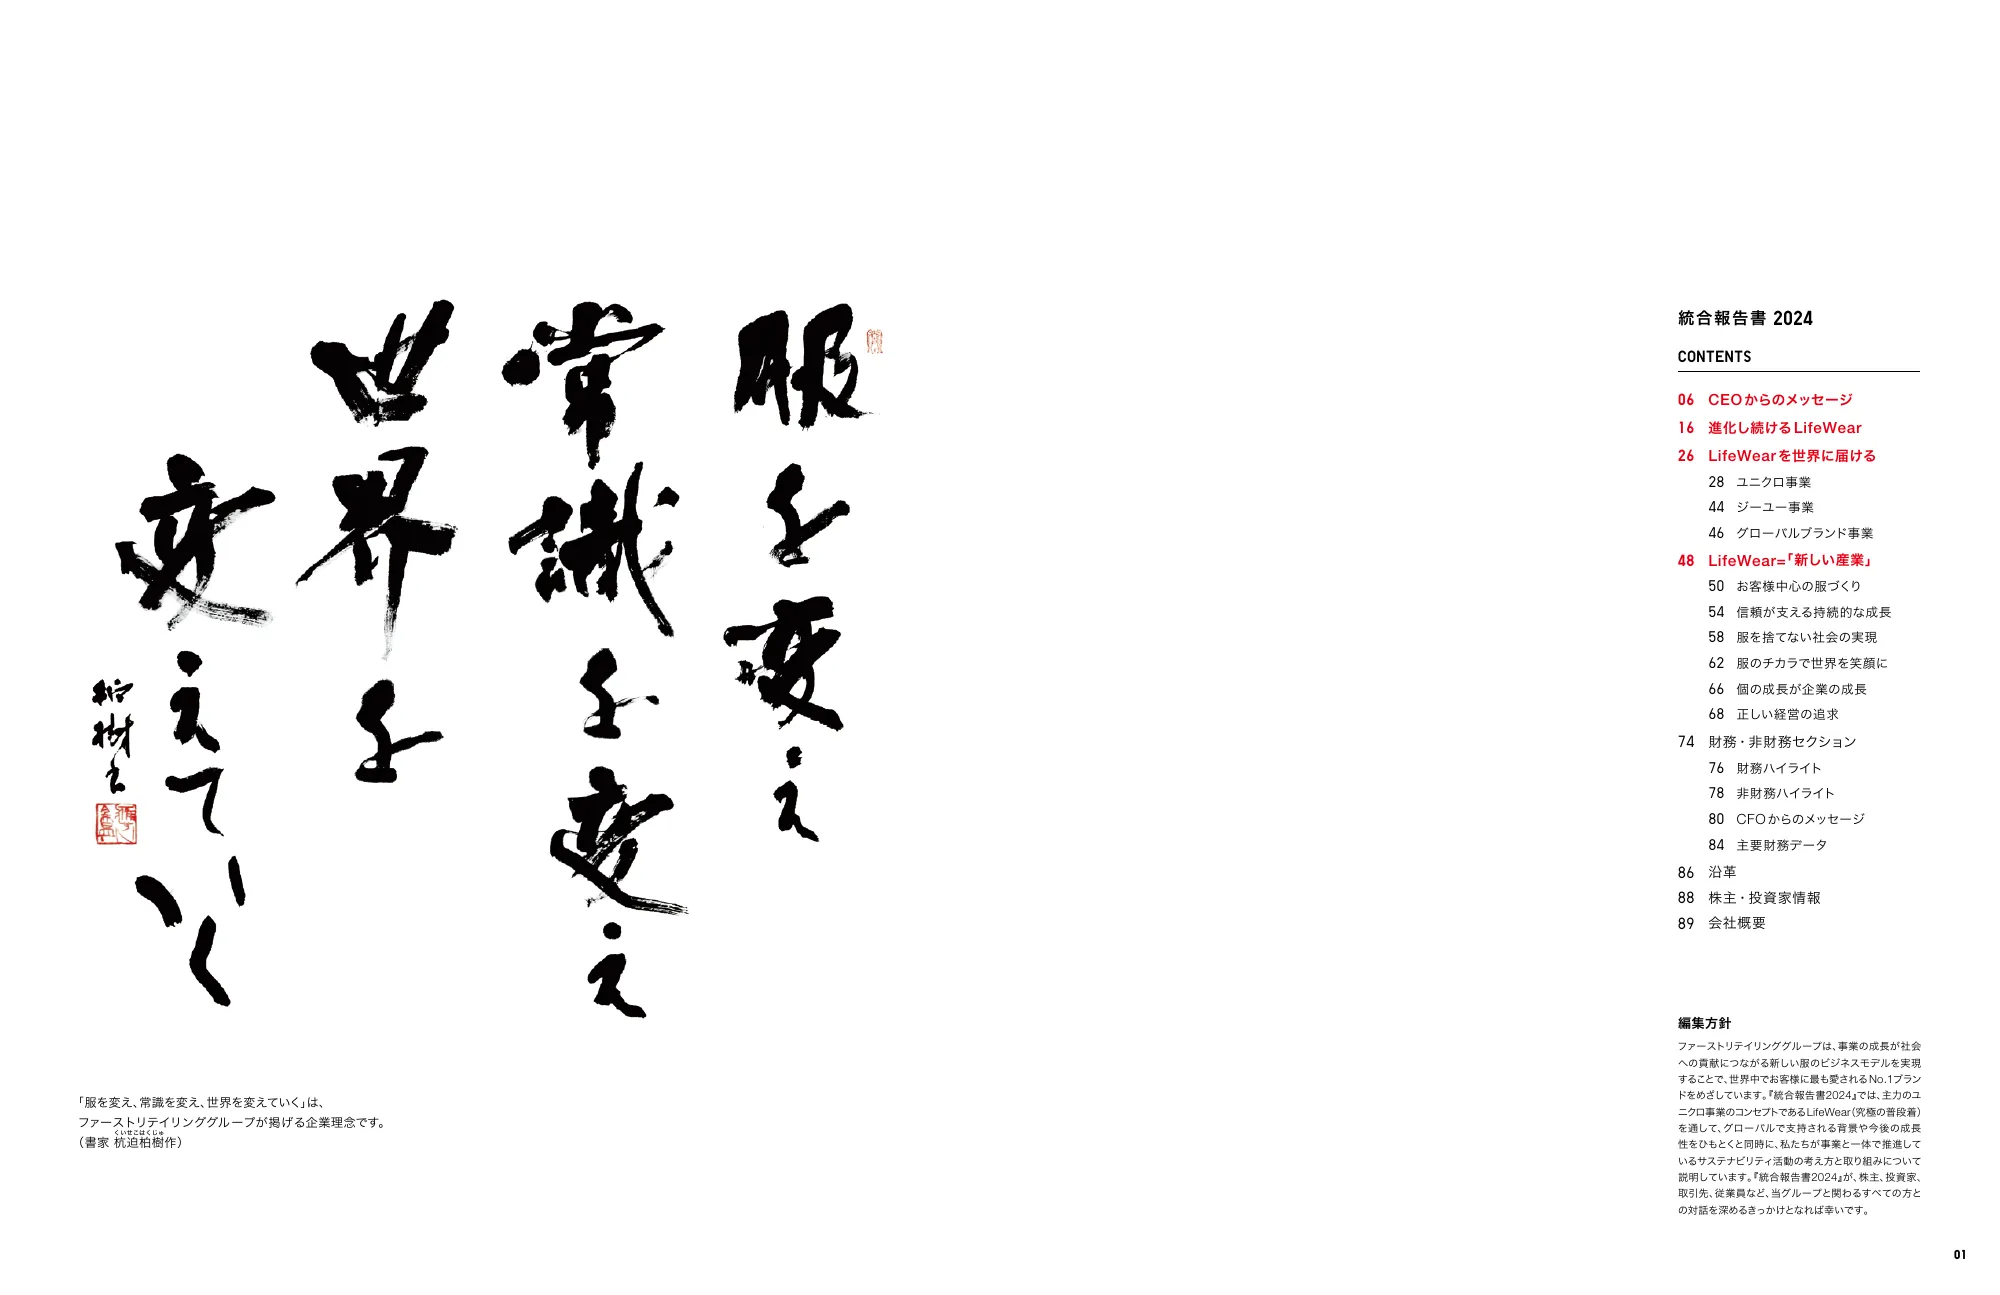 服を変え
常識を変え
世界を
変えていく
「服を変え、常識を変え、世界を変えていく」は、
ファーストリテイリンググループが掲げる企業理念です。
くいせこはくじゅ
（書家 杭迫柏樹作）
統合報告書 2024
CONTENTS
06 CEOからのメッセージ
16 進化し続けるLifeWear
26 LifeWearを世界に届ける
28 ユニクロ事業
44 ジーユー事業
46 グローバルブランド事業
48 LifeWear=「新しい産業」
50 お客様中心の服づくり
54 信頼が支える持続的な成長
58 服を捨てない社会の実現
62 服のチカラで世界を笑顔に
66 個の成長が企業の成長
68 正しい経営の追求
74 財務・非財務セクション
76 財務ハイライト
78 非財務ハイライト
80 CFOからのメッセージ
84 主要財務データ
86 沿革
88 株主・投資家情報
89 会社概要
編集方針
ファーストリテイリンググループは、事業の成長が社会
への貢献につながる新しい服のビジネスモデルを実現
することで、世界中でお客様に最も愛されるNo.1ブラン
ドをめざしています。『統合報告書2024』では、主力のユ
ニクロ事業のコンセプトであるLifeWear（究極の普段着）
を通して、グローバルで支持される背景や今後の成長
性をひもとくと同時に、私たちが事業と一体で推進して
いるサステナビリティ活動の考え方と取り組みについて
説明しています。『統合報告書2024』が、株主、投資家、
取引先、従業員など、当グループと関わるすべての方と
の対話を深めるきっかけとなれば幸いです。
01